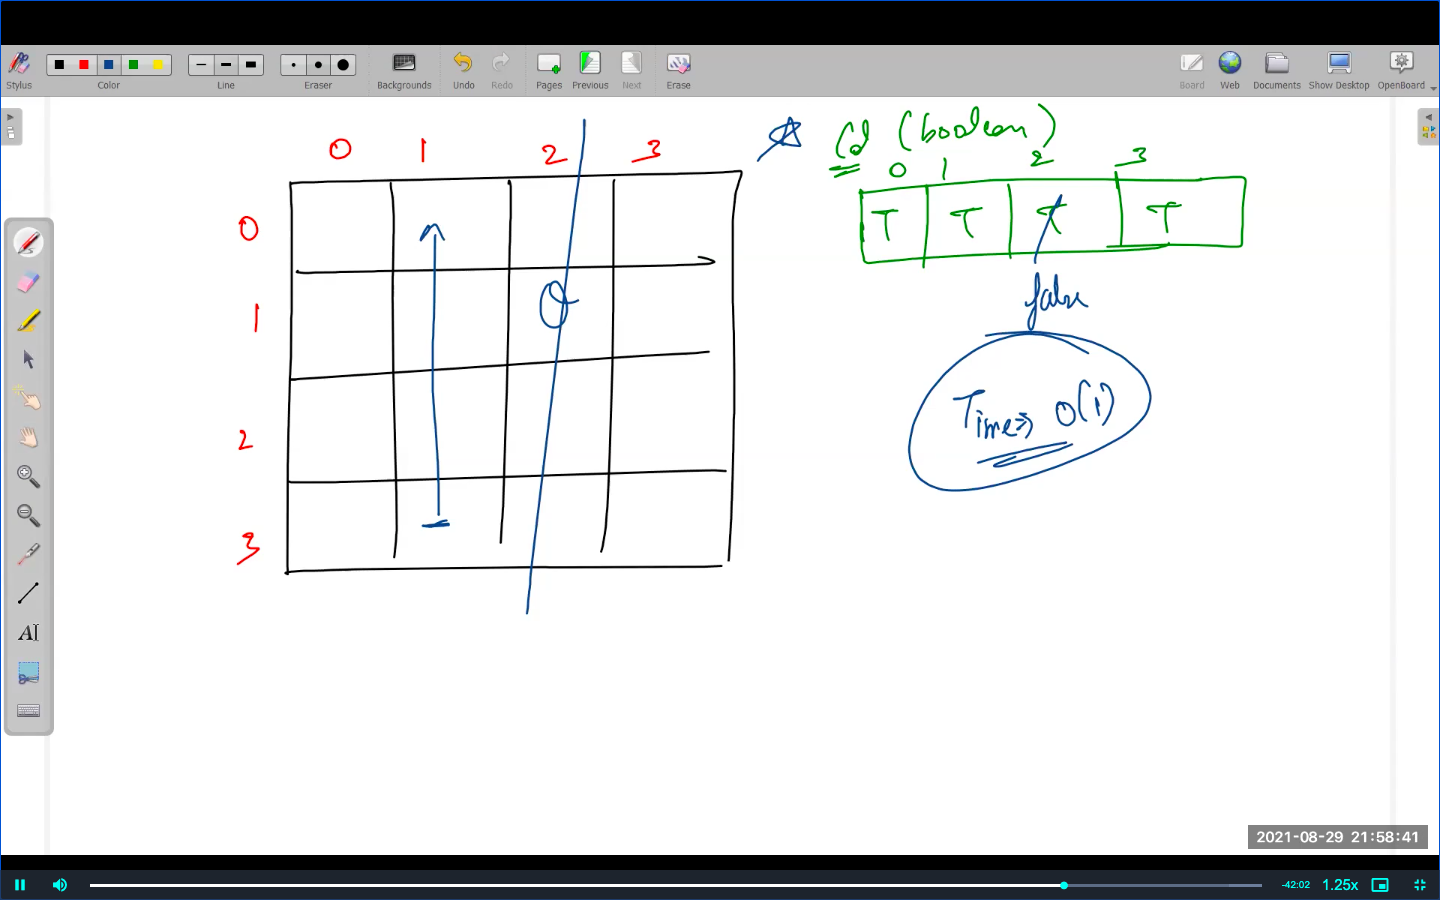 Stylus Color Line Eraser Backgrounds Undo Redo Pages Previous Next Erase Board Web Documents Show Desktop OpenBoard
Cd (boolean)
0 1 2 3
0 1 2 3
T T T T
0
1
Q
false
Time => O(1)
2
3
AI
2021-08-29 21:58:41
-42:02 1.25x